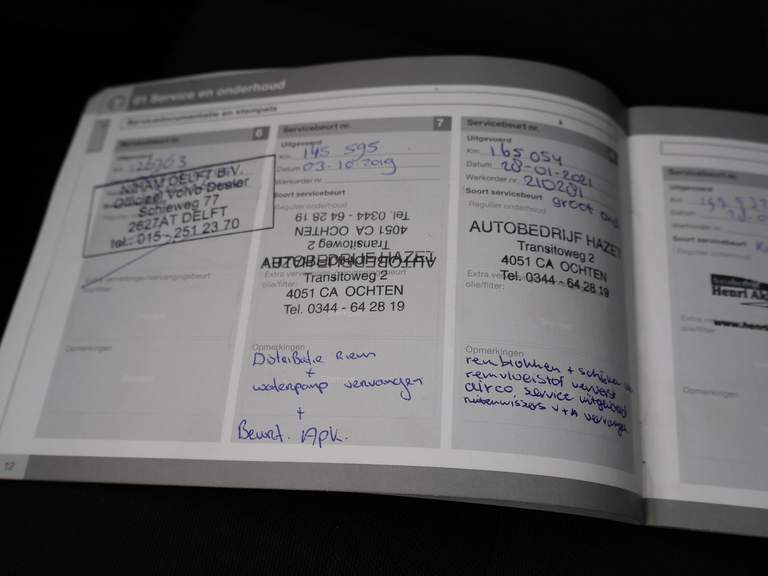 01 Service en onderhoud
Servicedocumentatie en stempels
Servicebeurt nr. 6
Km
NIHAM DELFT B.V.
Officieel Volvo Dealer
Schieweg 77
2627AT DELFT
tel.: 015 - 251 23 70
Opmerkingen
Servicebeurt nr. 7
Uitgevoerd
Km 145 595
Datum 03-10-2019
Werkorder nr.
Soort servicebeurt
Regulier onderhoud
Tel. 0344 - 64 28 19
4051 CA OCHTEN
Transitoweg 2
AUTOBEDRIJF HAZET
AUTOBEDRIJF HAZET
Transitoweg 2
4051 CA OCHTEN
Tel. 0344 - 64 28 19
olie/filter:
Opmerkingen
Distributie Riem
+
waterpomp vervangen
+
Beurt. Apk.
Servicebeurt nr.
Uitgevoerd
Km 165 054
Datum 28-01-2021
Werkorder nr. 210201
Soort servicebeurt
Regulier onderhoud groot
AUTOBEDRIJF HAZET
Transitoweg 2
4051 CA OCHTEN
Tel. 0344 - 64 28 19
olie/filter:
Opmerkingen
remblokken +
remvloeistof ververst
airco service uitgevoerd
ruitenwissers v+a vervangen
Servicebeurt nr.
Uitgevoerd
Km
Datum
Werkorder nr.
Soort servicebeurt
Regulier onderhoud
Henri
www.henri
Opmerkingen
12